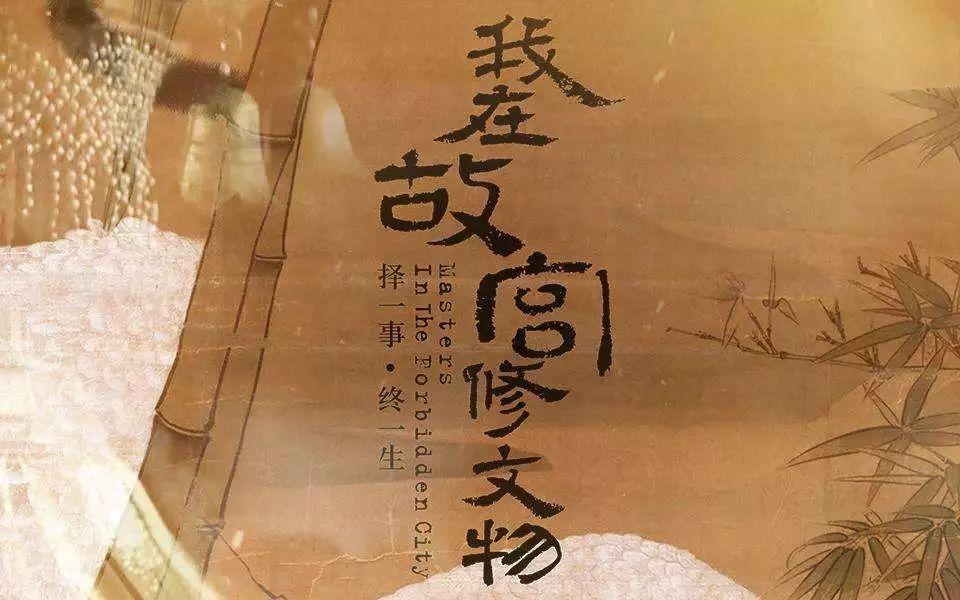 我在故宫修文物
Masters
In The Forbidden City
择一事·终一生